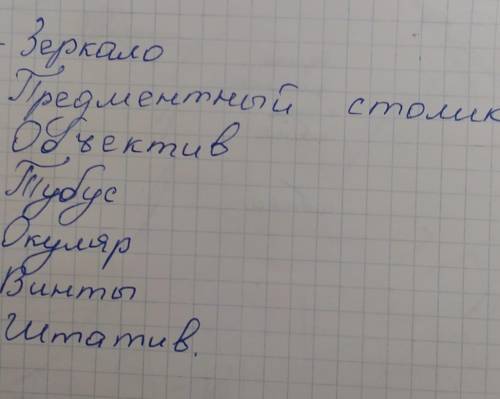 - Зеркало
Предментный столик
Объектив
Тубус
Окуляр
Винты
Штатив.